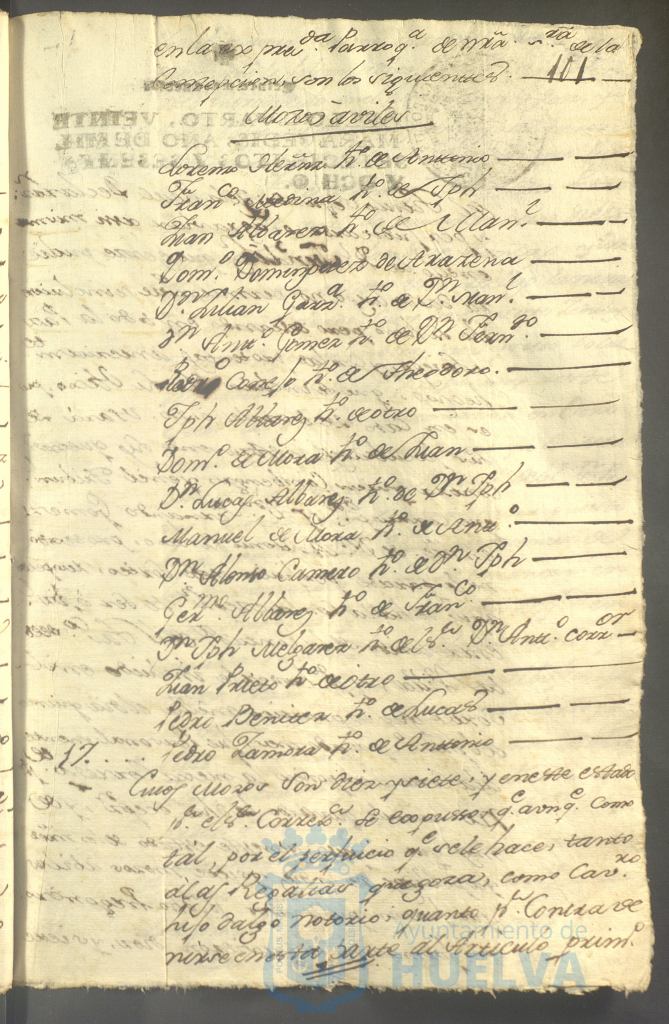 en la expres.da Parroq.a de nrã. s.ra de la
Concepcion, son los siguientes. 101
Mozos aviles
Lorenzo Herña h.o de Antonio
Fran.co Medina h.o de Jph
Juan Albarez h.o de Man.l
Dom.o Dominguez de Arazena
D.n Julian Garz.a h.o de D.n Man.l
D.n Ant.o Gomez h.o de D.n Fern.do
Pedro Correjo h.o de Theodoro.
Jph Albarez h.o de otro
Dom.o de Mora h.o de Juan
D.n Lucas Albarez h.o de D.n Jph
Manuel de Mora h.o de Ant.o
D.n Alonso Camero h.o de D.n Jph
Ger.mo Albarez h.o de Fran.co
D.n Jph Melgarez h.o del S.or D.n Ant.o corr.or
Juan Prieto h.o de otro
Pedro Benitez h.o de Lucas
17. Pedro Zamora h.o de Antonio
Cuios Mozos son diez y siete; y en este estado
p.r el S.or Correx.or se expuso, q.e aunq.e como
tál, por el perjuicio q.e se le hace, tanto
a las Regalias que goza, como Cav.ro
hijo dalgo notorio; quanto p.r Contrabe
nirse en esta parte al Articulo prim.o
Ayuntamiento de
HUELVA